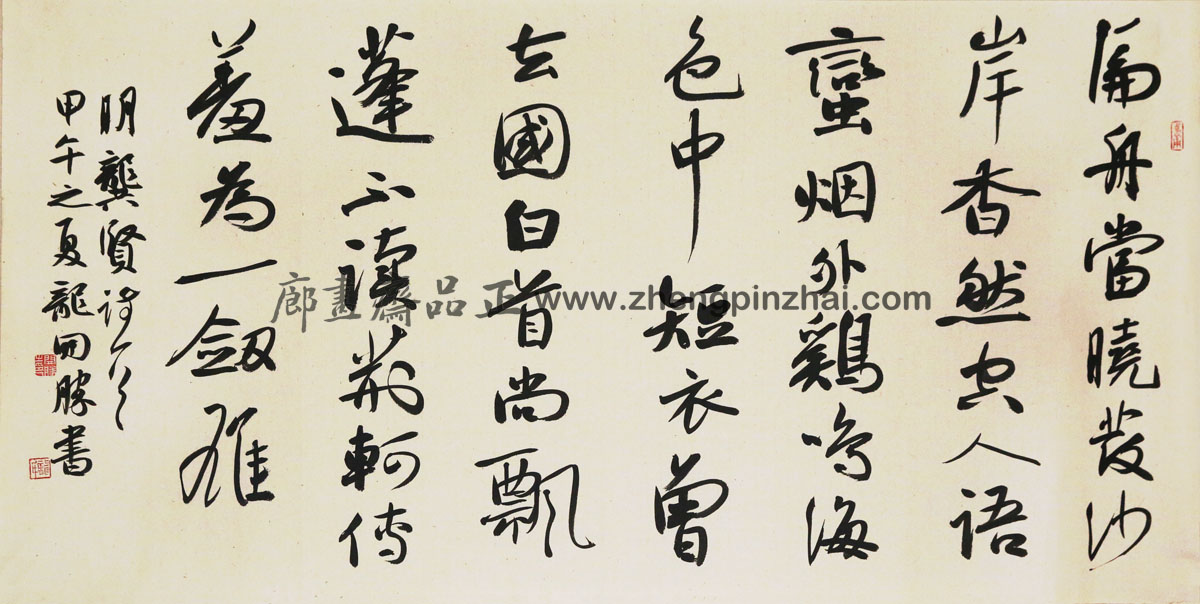 扁舟當曉發沙
岸杳然空人語
蠻烟外鷄鳴海
色中短衣曾
去國白首尚飄
蓬不讀荊軻傳
羞為一劔雄
明龔賢詩一首
甲午之夏龍開勝書
正品齋畫廊 www.zhengpinzhai.com